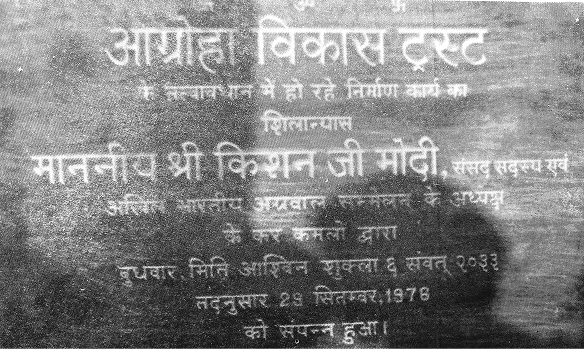 आग्रोहा विकास ट्रस्ट
के तत्वावधान में हो रहे निर्माण कार्य का
शिलान्यास
माननीय श्री किशन जी मोदी, संसद सदस्य एवं
अखिल भारतीय अग्रवाल सम्मेलन के अध्यक्ष
के कर कमलों द्वारा
बुधवार, मिति आश्विन शुक्ला ६ संवत् २०३३
तदनुसार 29 सितम्बर, 1976
को संपन्न हुआ।